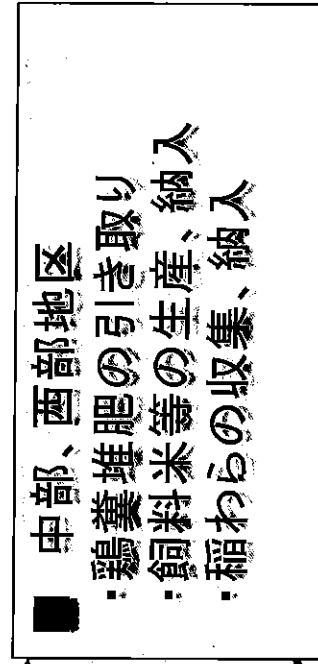 ■ 中部、西部地区
・鶏糞堆肥の引き取り
・飼料米等の生産、納入
・稲わらの収集、納入